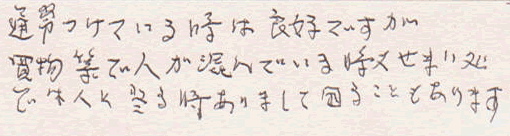 通常つけている時は良好ですが
買物等で人が混んでいる時又せまい処
で 人と 時ありまして困ることもあります